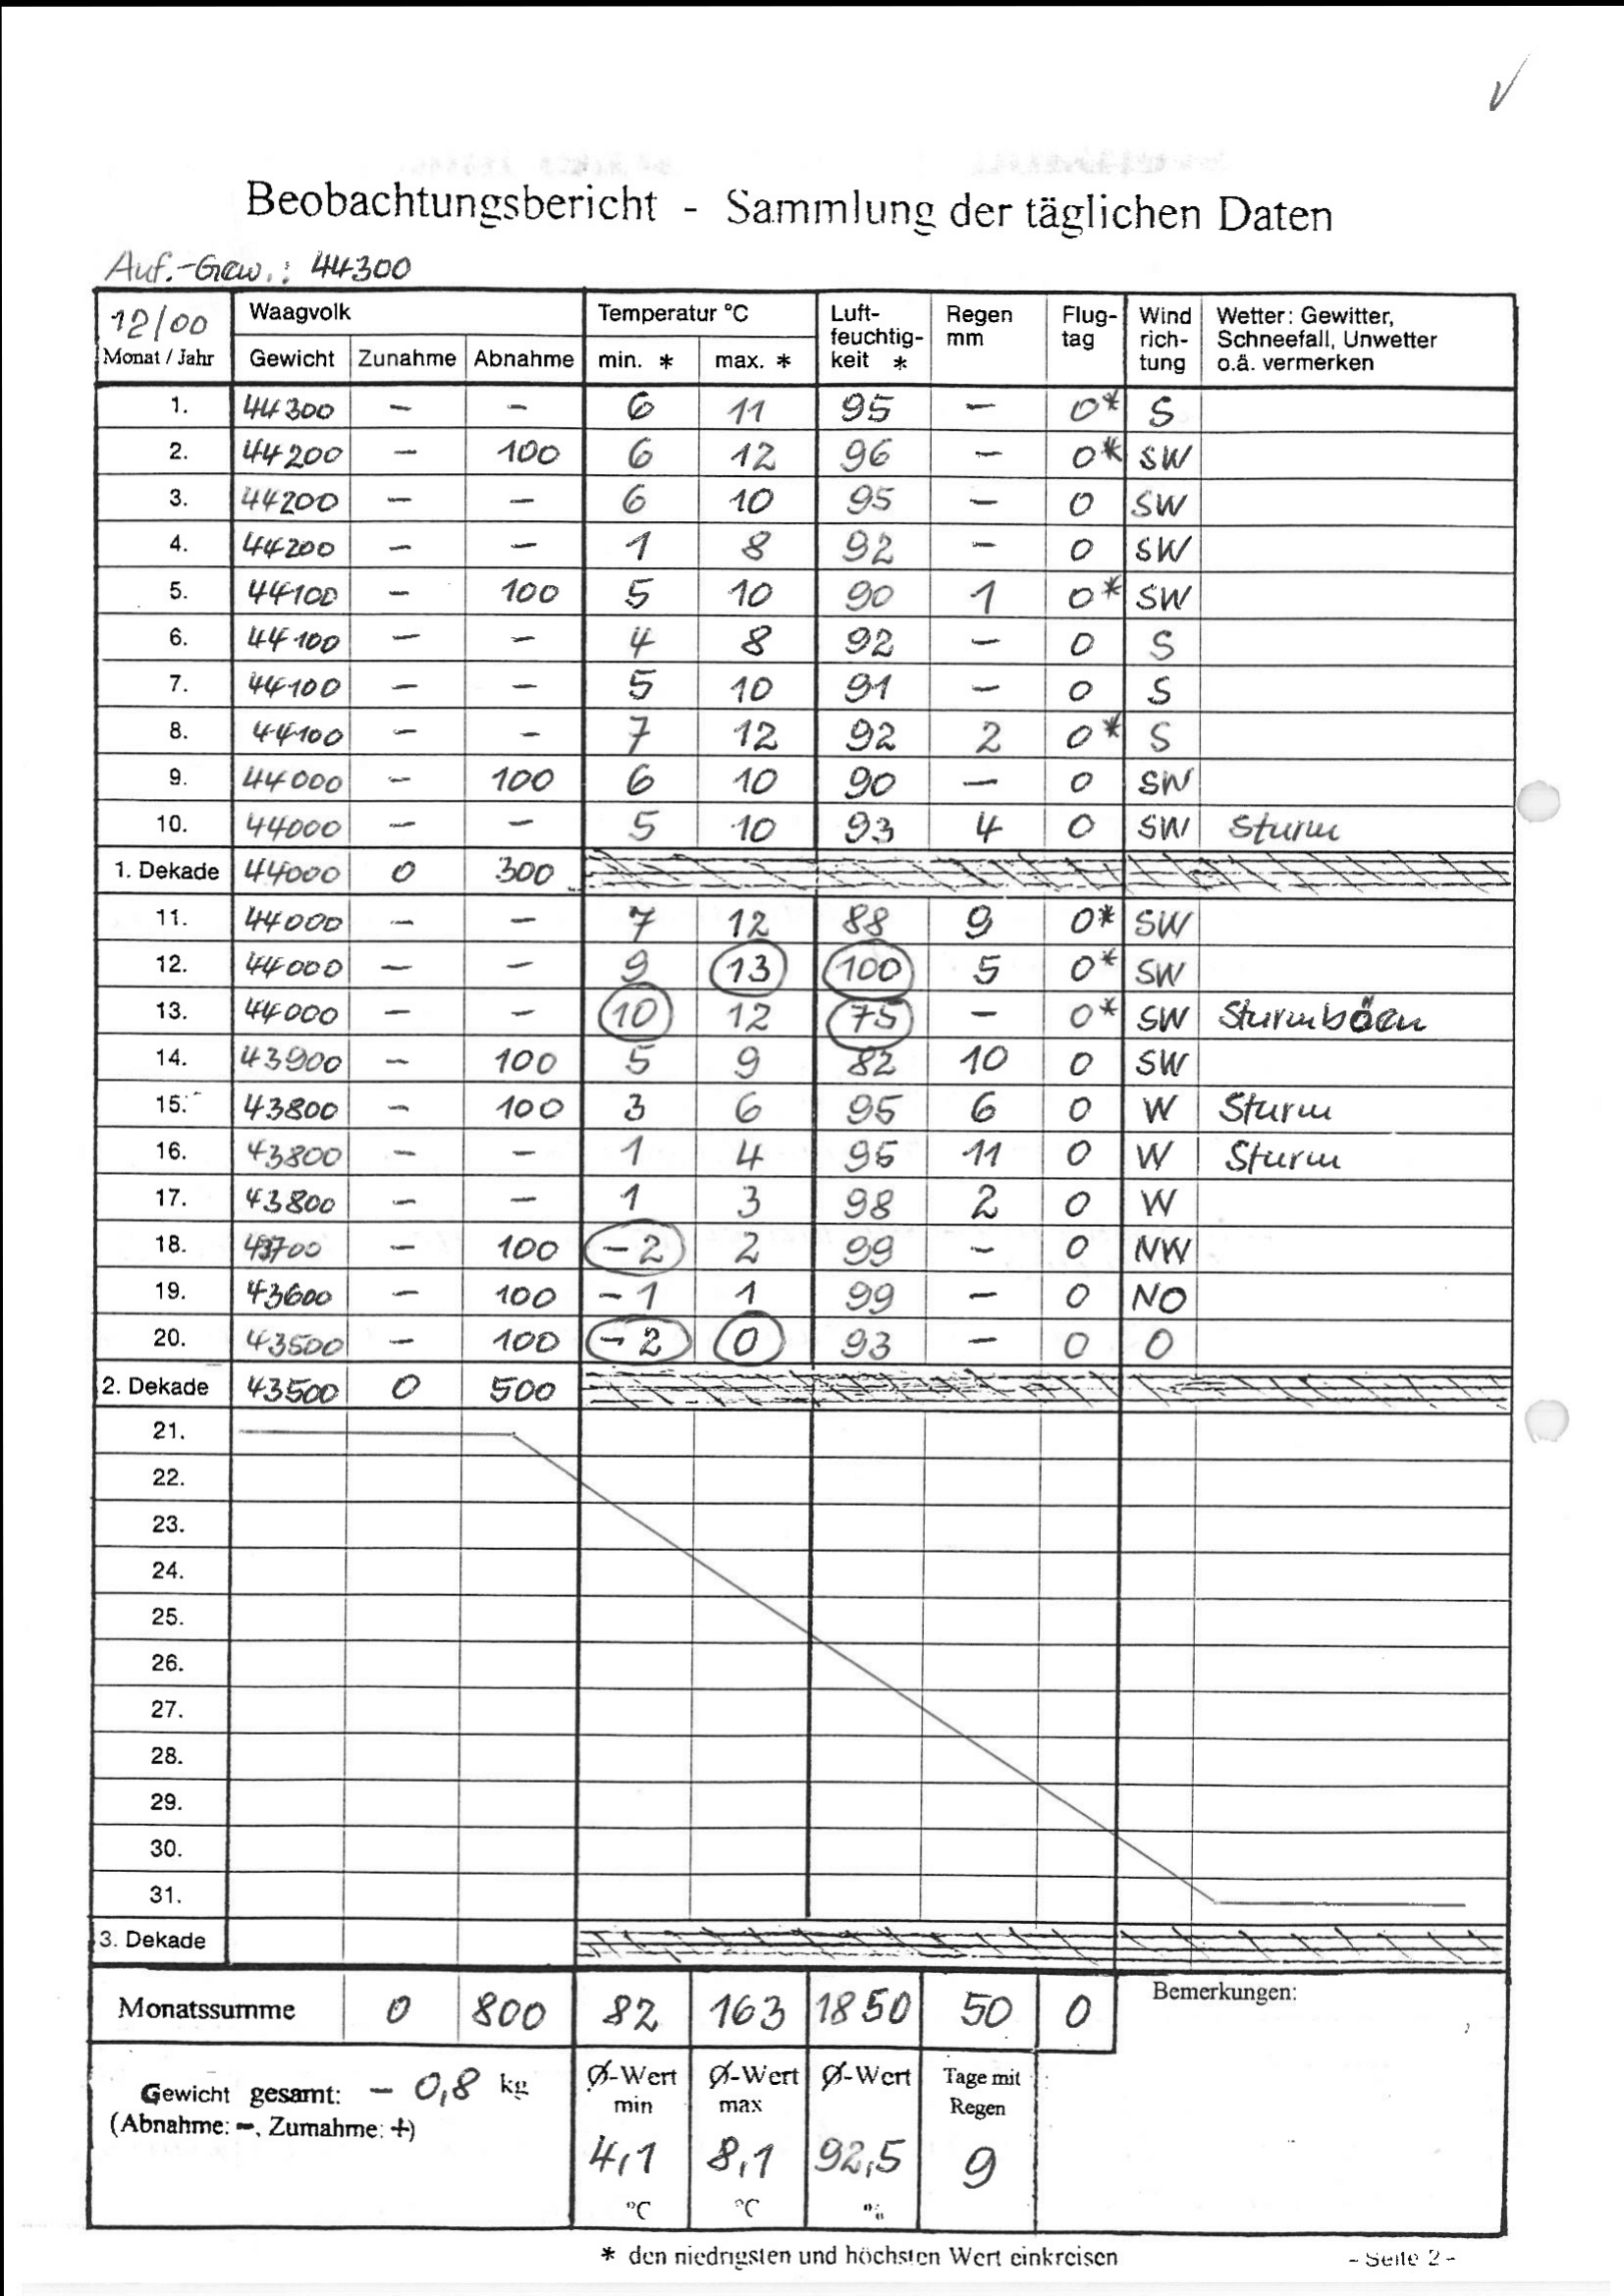 Beobachtungsbericht - Sammlung der täglichen Daten
Auf.-Gew.: 44300
12/00 Waagvolk Temperatur °C Luft- Regen Flug- Wind Wetter: Gewitter,
feuchtig- mm tag rich- Schneefall, Unwetter
Monat / Jahr Gewicht Zunahme Abnahme min. * max. * keit * tung o.ä. vermerken
1. 44300 – – 6 11 95 – 0* S
2. 44200 – 100 6 12 96 – 0* SW
3. 44200 – – 6 10 95 – 0 SW
4. 44200 – – 1 8 92 – 0 SW
5. 44100 – 100 5 10 90 1 0* SW
6. 44100 – – 4 8 92 – 0 S
7. 44100 – – 5 10 91 – 0 S
8. 44100 – – 7 12 92 2 0* S
9. 44000 – 100 6 10 90 – 0 SW
10. 44000 – – 5 10 93 4 0 SW Sturm
1. Dekade 44000 0 300
11. 44000 – – 7 12 88 9 0* SW
12. 44000 – – 9 13 100 5 0* SW
13. 44000 – – 10 12 75 – 0* SW Sturmböen
14. 43900 – 100 5 9 82 10 0 SW
15. 43800 – 100 3 6 95 6 0 W Sturm
16. 43800 – – 1 4 95 11 0 W Sturm
17. 43800 – – 1 3 98 2 0 W
18. 43700 – 100 -2 2 99 – 0 NW
19. 43600 – 100 -1 1 99 – 0 NO
20. 43500 – 100 -2 0 93 – 0 O
2. Dekade 43500 0 500
21.
22.
23.
24.
25.
26.
27.
28.
29.
30.
31.
3. Dekade
Monatssumme 0 800 82 163 1850 50 0 Bemerkungen:
Gewicht gesamt: - 0,8 kg Ø-Wert Ø-Wert Ø-Wert Tage mit
(Abnahme: -, Zumahme: +) min max Regen
4,1 8,1 92,5 9
°C °C %
* den niedrigsten und höchsten Wert einkreisen - Seite 2 -